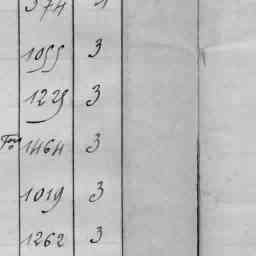 574 1
1055 3
1225 3
1464 3
1019 3
1262 3